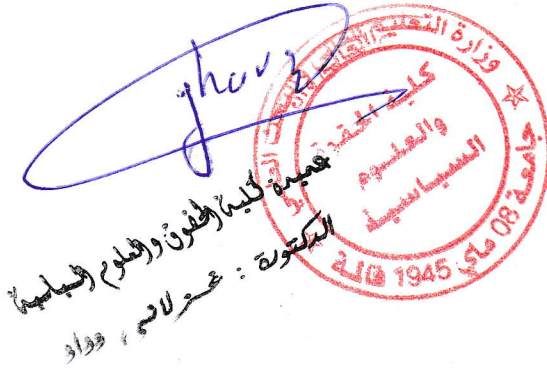 وزارة التعليم العالي والبحث العلمي
جامعة 08 ماي 1945 قالمة
كلية الحقوق
والعلوم
السياسية
عميدة كلية الحقوق والعلوم السياسية
الدكتورة : غزلاني وداد